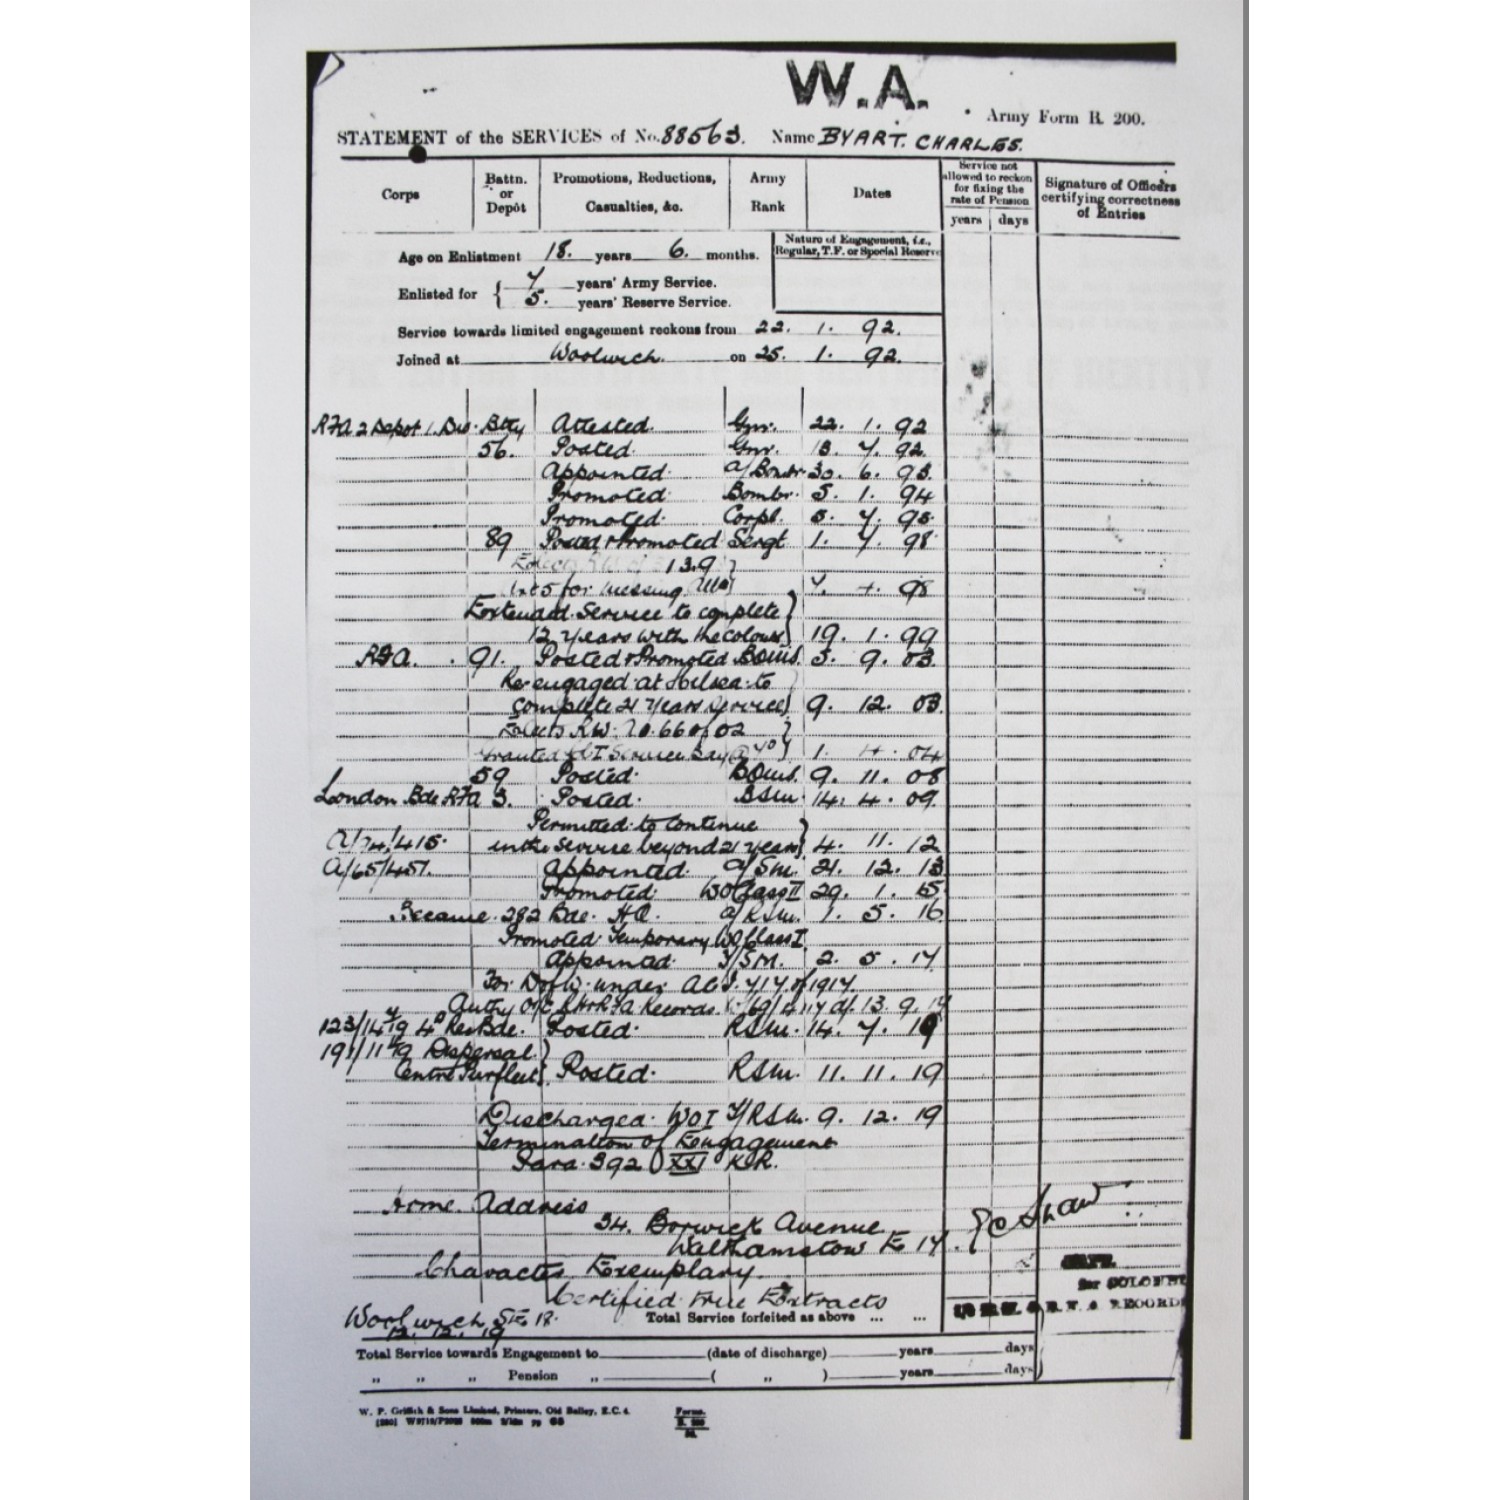 W.A.
Army Form B. 200.
STATEMENT of the SERVICES of No. 88563. Name BYART. CHARLES.
Corps
Battn. or Depôt
Promotions, Reductions, Casualties, &c.
Army Rank
Dates
Service not allowed to reckon for fixing the rate of Pension
years days
Signature of Officers certifying correctness of Entries
Age on Enlistment 18. years 6. months.
Nature of Engagement, i.e., Regular, T.F. or Special Reserve
Enlisted for { 7 years' Army Service.
5. years' Reserve Service.
Service towards limited engagement reckons from 22. 1. 92.
Joined at Woolwich. on 25. 1. 92.
RFA 2 Depot 1. Div. Btty Attested. Gnr. 22. 1. 92
56. Posted. Gnr. 13. 7. 92.
Appointed. a/Bombr. 30. 6. 93.
Promoted. Bombr. 5. 1. 94
Promoted. Corpl. 5. 7. 95.
89 Posted & Promoted Sergt 1. 7. 98.
139
for messing 98
Extended Service to complete
12 years with the colours } 19. 1. 99
RFA. 91. Posted & Promoted BQMS. 3. 9. 03.
Re-engaged at Chelsea to
complete 21 years service } 9. 12. 03.
Elects RW. 66 of 02
Granted Cl I Service Pay } 1. 4. 04
59 Posted. BQMS. 9. 11. 08
London Bde RFA 3. Posted. BSM. 14. 4. 09.
Permitted to continue
A/74/415. in the service beyond 21 years } 4. 11. 12
A/65/457. Appointed. a/SM. 21. 12. 13
Promoted. WO Class II 29. 1. 15
Became 282 Bde. HQ. a/RSM. 1. 5. 16
Promoted Temporary WO Class I
Appointed. T/SM. 2. 5. 17
For under 717 of 1917.
Authy O i/c RH & RFA Records 13. 9. 17
123/14 7/19 4th Res Bde. Posted. RSM. 14. 7. 19
Dispersal
Centre Purfleet } Posted. RSM. 11. 11. 19
Discharged. WO I T/RSM. 9. 12. 19
Termination of Engagement
Para. 392 XXI KR.
Home Address
34. Borwick Avenue
Walthamstow E 17.
Shaw
Character Exemplary.
CAPT.
for COLONEL
Certified true Extracts
R.F.A. RECORDS
Woolwich SE 18.
12. 12. 19
Total Service forfeited as above ... ...
Total Service towards Engagement to (date of discharge) years days
„ „ „ Pension „ ( „ ) years days
W. P. Griffith & Sons Limited, Printers, Old Bailey, E.C. 4.
Forms.
B. 200